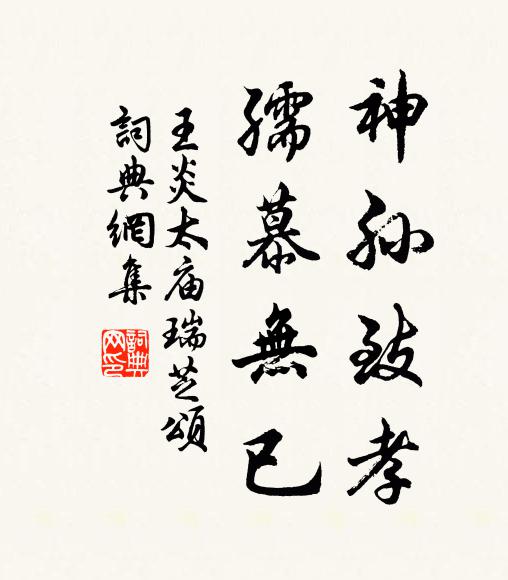 神孙致孝
孺慕無已
王炎太庙瑞芝頌
詞典網集
詞典网印